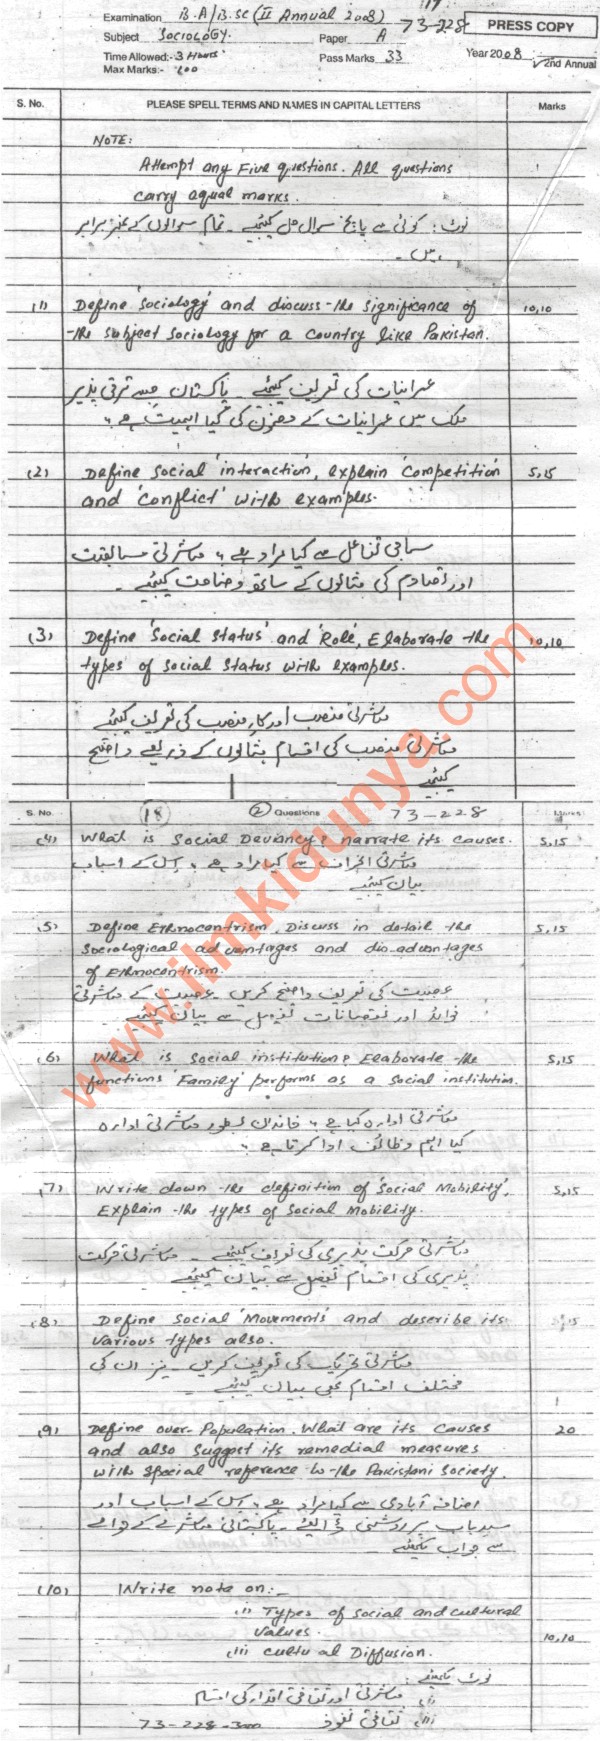 17
Examination B.A/B.Sc (II Annual 2008) 73-228 PRESS COPY
Subject SOCIOLOGY. Paper A
Time Allowed:- 3 Hours Pass Marks 33 Year 2008 2nd Annual
Max Marks:- 100
S. No. PLEASE SPELL TERMS AND NAMES IN CAPITAL LETTERS Marks
NOTE:
Attempt any Five questions. All questions
carry aqual marks.
نوٹ: کوئی سے پانچ سوال حل کیجئے۔ تمام سوالوں کے نمبر برابر
ہیں۔
(1) Define 'Sociology' and discuss the significance of 10,10
the subject Sociology for a country like Pakistan.
عمرانیات کی تعریف کیجئے۔ پاکستان جیسے ترقی پذیر
ملک میں عمرانیات کے مضمون کی کیا اہمیت ہے؟
(2) Define Social 'interaction', explain 'Competition' 5,15
and 'Conflict' with examples.
سماجی تفاعل سے کیا مراد ہے؟ معاشرتی مسابقت
اور تصادم کی مثالوں کے ساتھ وضاحت کیجئے۔
(3) Define 'Social Status' and 'Role', Elaborate the 10,10
types of Social Status with examples.
معاشرتی منصب اور کار منصب کی تعریف کیجئے
معاشرتی منصب کی اقسام مثالوں کے ذریعے واضح
کیجئے
S. No. 18 (2) Questions 73-228 Marks
(4) What is Social Devancy? narrate its causes. 5,15
معاشرتی انحراف سے کیا مراد ہے؟ اس کے اسباب
بیان کیجئے
(5) Define Ethnocentrism. Discuss in detail the 5,15
Sociological advantages and dis-advantages
of Ethnocentrism.
عصبیت کی تعریف واضح کریں۔ عصبیت کے معاشرتی
فوائد اور نقصانات تفصیل سے بیان کیجئے۔
(6) What is social institution? Elaborate the 5,15
functions 'Family' performs as a social institution.
معاشرتی ادارہ کیا ہے؟ خاندان بطور معاشرتی ادارہ
کیا اہم وظائف ادا کرتا ہے؟
(7) Write down the definition of 'Social Mobility'. 5,15
Explain the types of Social Mobility.
معاشرتی حرکت پذیری کی تعریف کیجئے۔ معاشرتی حرکت
پذیری کی اقسام تفصیل سے بیان کیجئے
(8) Define Social 'Movements' and describe its 5,15
various types also.
معاشرتی تحریک کی تعریف کریں۔ نیز ان کی
مختلف اقسام بھی بیان کیجئے۔
(9) Define over-Population. What are its causes 20
and also suggest its remedial measures
with special reference to the Pakistani Society.
اضافہ آبادی سے کیا مراد ہے؟ اس کے اسباب اور
سدباب پر روشنی ڈالیئے۔ پاکستانی معاشرے کے حوالے
سے جواب لکھیئے۔
(10) Write note on:-
(i) Types of Social and cultural
Values. 10,10
(ii) Cultural Diffusion.
نوٹ لکھیئے:
(i) معاشرتی اور ثقافتی اقدار کی اقسام
(ii) ثقافتی نفوذ 73-228-300
www.ilmkidunya.com